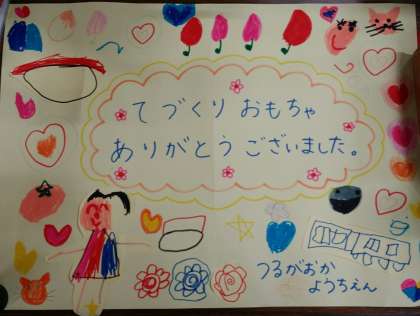 てづくりおもちゃ
ありがとうございました。
つるがおか
ようちえん